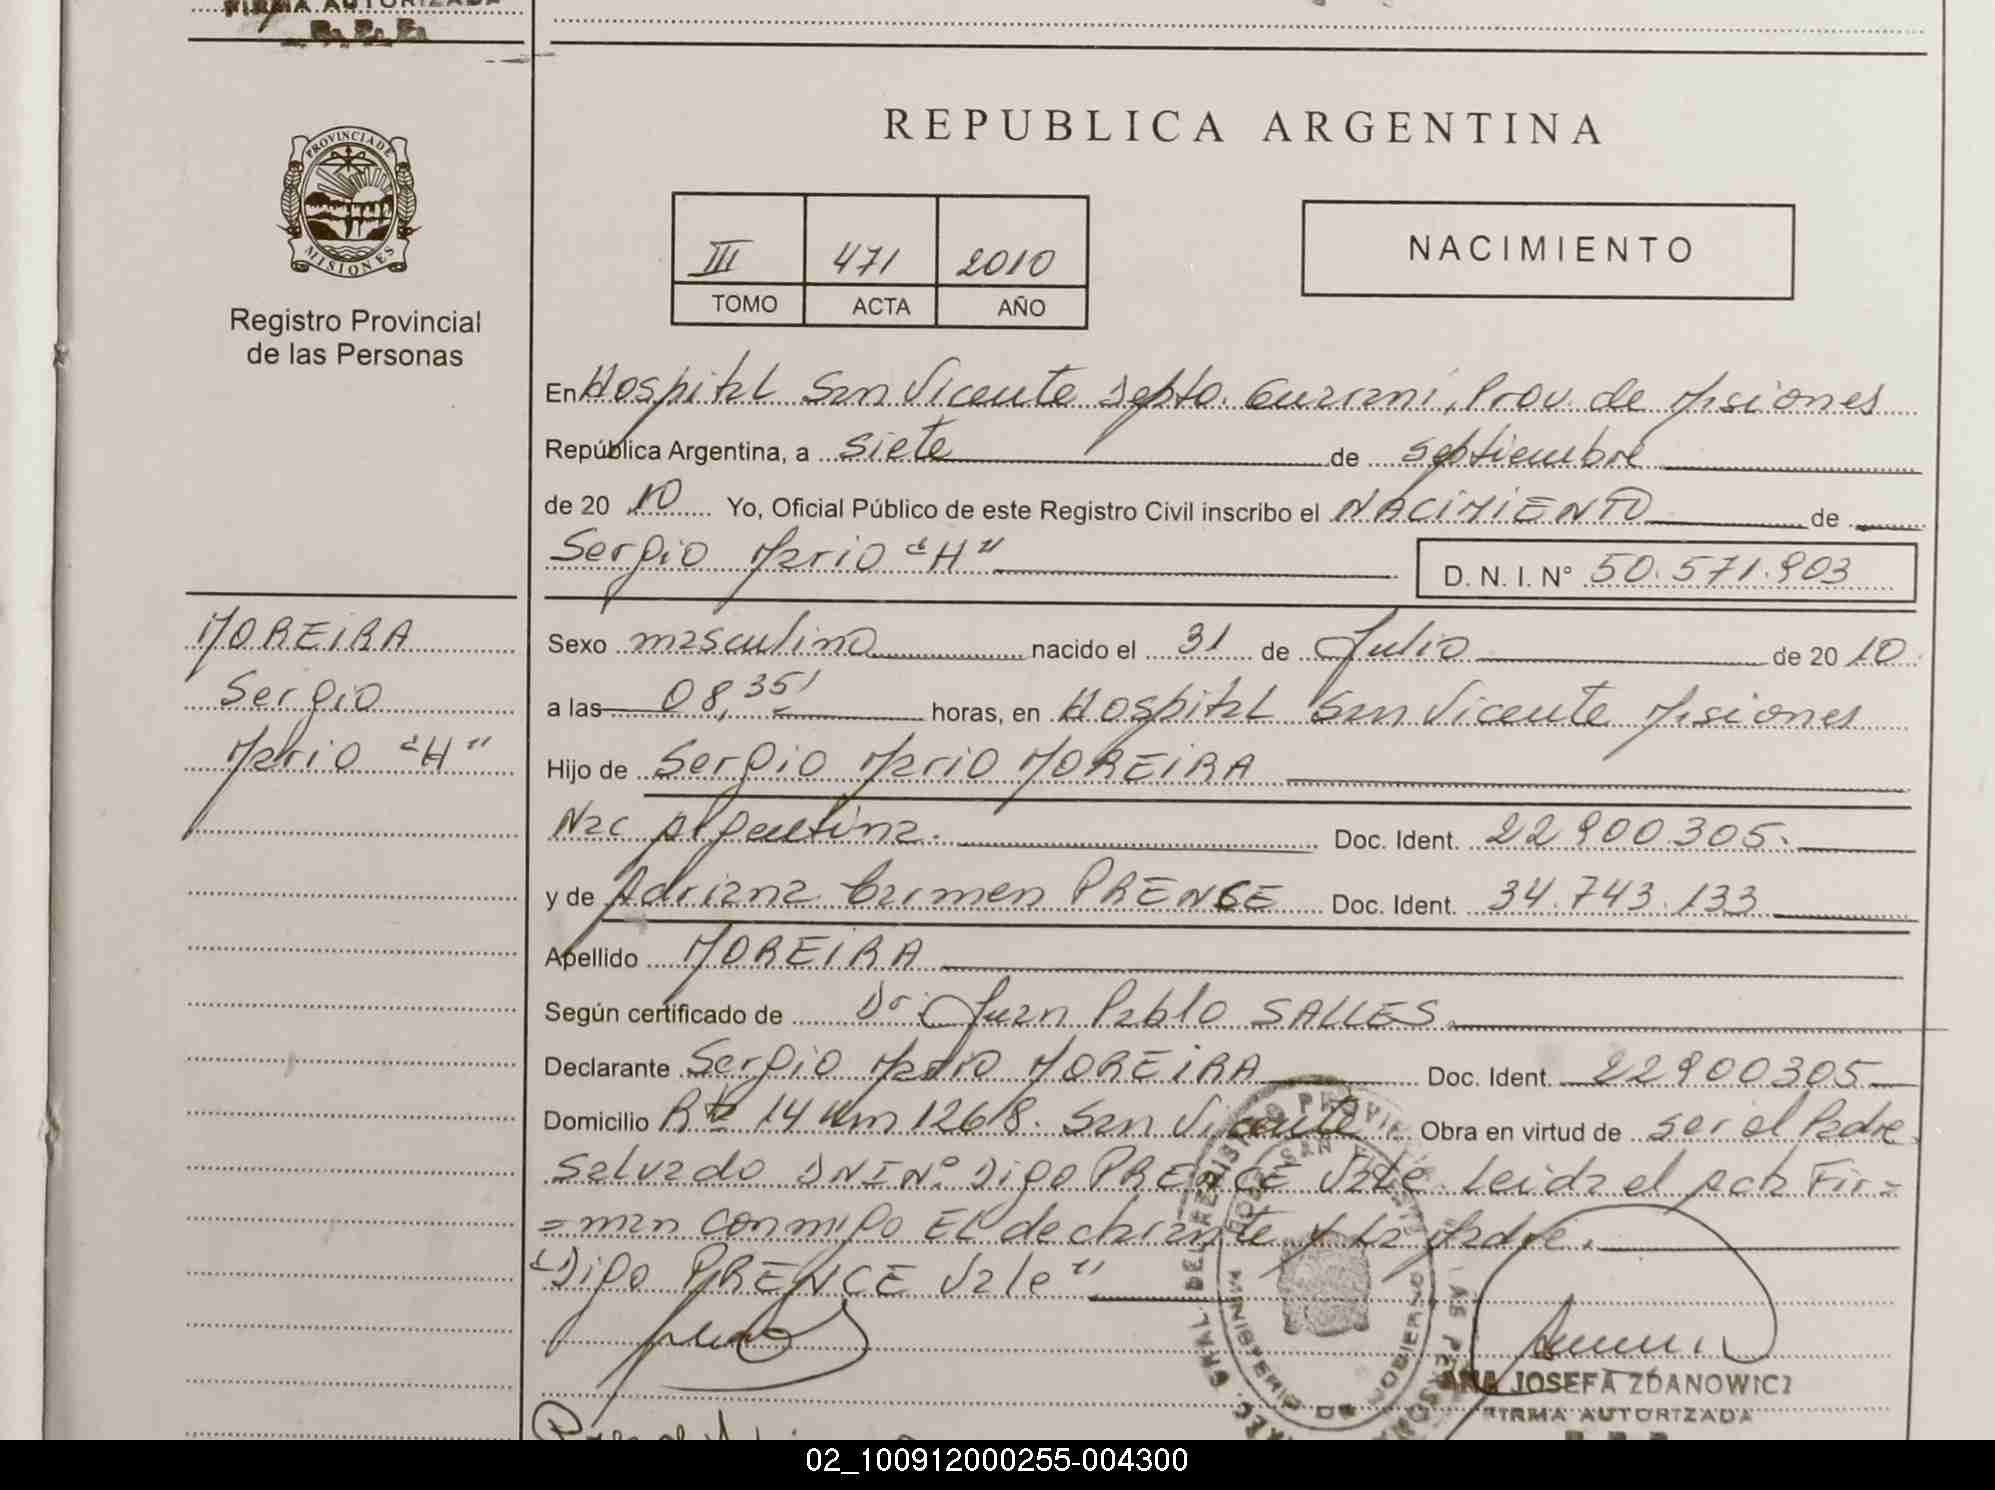 FIRMA AUTORIZADA
R. P. P.
PROVINCIA DE
MISIONES
Registro Provincial
de las Personas
REPUBLICA ARGENTINA
III 471 2010
TOMO ACTA AÑO
NACIMIENTO
En Hospital San Vicente Depto. Guarani, Prov. de Misiones
República Argentina, a siete de septiembre
de 20 10 Yo, Oficial Público de este Registro Civil inscribo el NACIMIENTO de
Sergio Mario "H"
D. N. I. N° 50.571.903
MOREIRA
Sergio
Mario "H"
Sexo masculino nacido el 31 de Julio de 20 10
a las 08,35' horas, en Hospital San Vicente Misiones
Hijo de Sergio Mario MOREIRA
Nac Argentina. Doc. Ident. 22900305.
y de Adriana Carmen PRENCE Doc. Ident. 34.743.133
Apellido MOREIRA
Según certificado de Dr. Juan Pablo SALLES
Declarante Sergio Mario MOREIRA Doc. Ident. 22900305
Domicilio Rta 14 Km 1268. San Vicente Obra en virtud de ser el Padre
Salvado DNI N° Digo PRENCE Vale. Leida el Acta Fir=
=man conmigo El declarante y la Madre.
"Digo PRENCE Vale"
ANA JOSEFA ZDANOWICZ
FIRMA AUTORIZADA
02_100912000255-004300